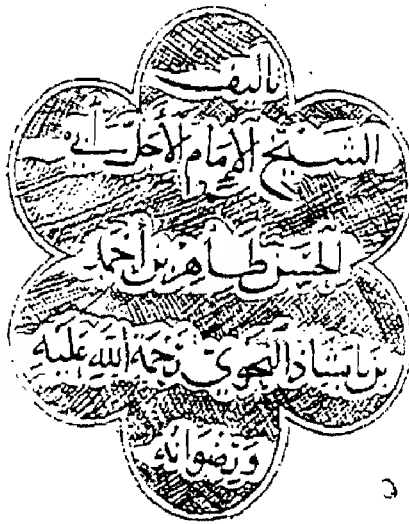 تأليف
الشيخ الإمام الأجل أبي
الحسن طاهر بن أحمد
بن بابشاذ النحوي رحمة الله عليه
ورضوانه